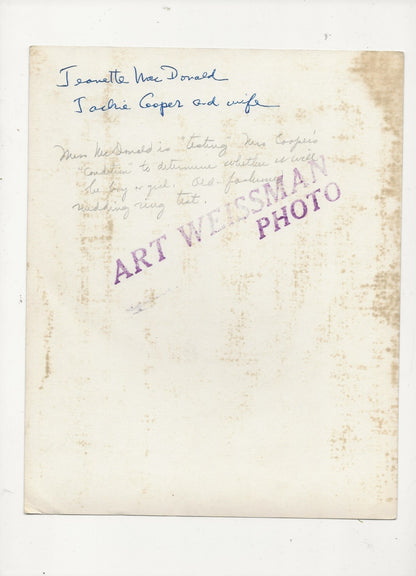 Jeanette MacDonald
Jackie Cooper and wife
Miss MacDonald is "testing" Mrs Cooper's
"Condition" to determine whether it will
be boy or girl. Old-fashioned
wedding ring test.
ART WEISSMAN
PHOTO